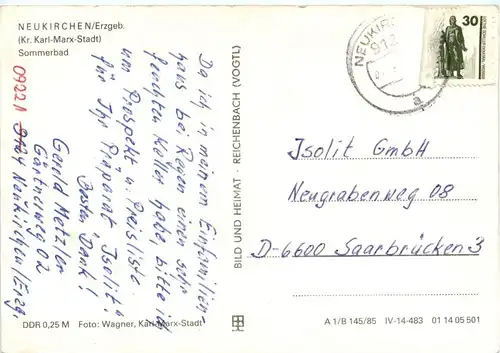 NEUKIRCHEN/Erzgeb.
(Kr. Karl-Marx-Stadt)
Sommerbad
Da ich in meinem Einfamilien-
haus bei Regen einen sehr
feuchten Keller habe, bitte ich
um Prospekt u. Preisliste
für Ihr Präparat „Isolit“
Besten Dank!
Gerold Metzler
Gärtnerweg 02
9124 Neukirchen/Erzg.
09221
DDR 0,25 M Foto: Wagner, Karl-Marx-Stadt
BILD UND HEIMAT · REICHENBACH (VOGTL)
NEUKIR
912
a
30
Isolit GmbH
Neugrabenweg 08
D-6600 Saarbrücken 3
A 1/B 145/85 IV-14-483 01 14 05 501